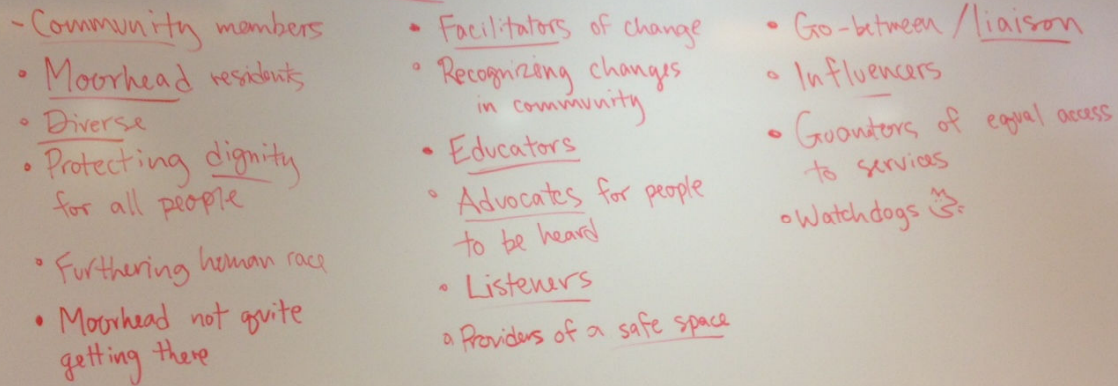 - Community members
• Moorhead residents
• Diverse
• Protecting dignity
for all people
• Furthering human race
• Moorhead not quite
getting there
• Facilitators of change
• Recognizing changes
in community
• Educators
• Advocates for people
to be heard
• Listeners
• Providers of a safe space
• Go-between / liaison
• Influencers
• Guanters of equal access
to services
• Watchdogs